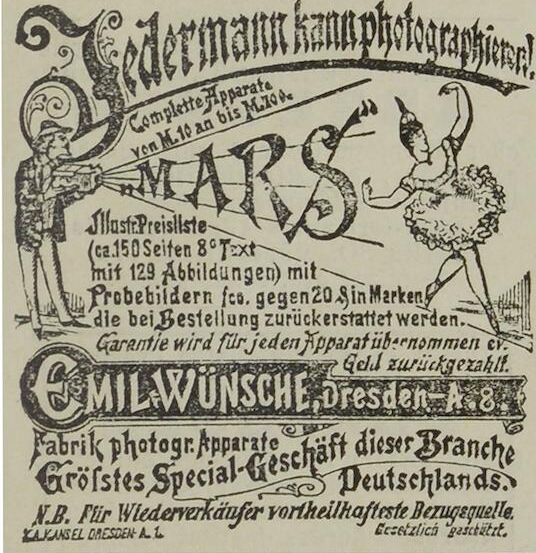 Jedermann kann photographieren!
Complette Apparate
von M.10 an bis M.200.
„MARS“
Illustr. Preisliste
(ca.150 Seiten 8° Text
mit 129 Abbildungen) mit
Probebildern fco. gegen 20 ₰ in Marken,
die bei Bestellung zurückerstattet werden.
Garantie wird für jeden Apparat übernommen ev.
Geld zurückgezahlt.
EMIL WÜNSCHE, Dresden-A. 8.
Fabrik photogr. Apparate
Größtes Special-Geschäft dieser Branche
Deutschlands.
N.B. Für Wiederverkäufer vortheilhafteste Bezugsquelle.
K.A.KANSEL DRESDEN-A. 1.
Gesetzlich geschützt.